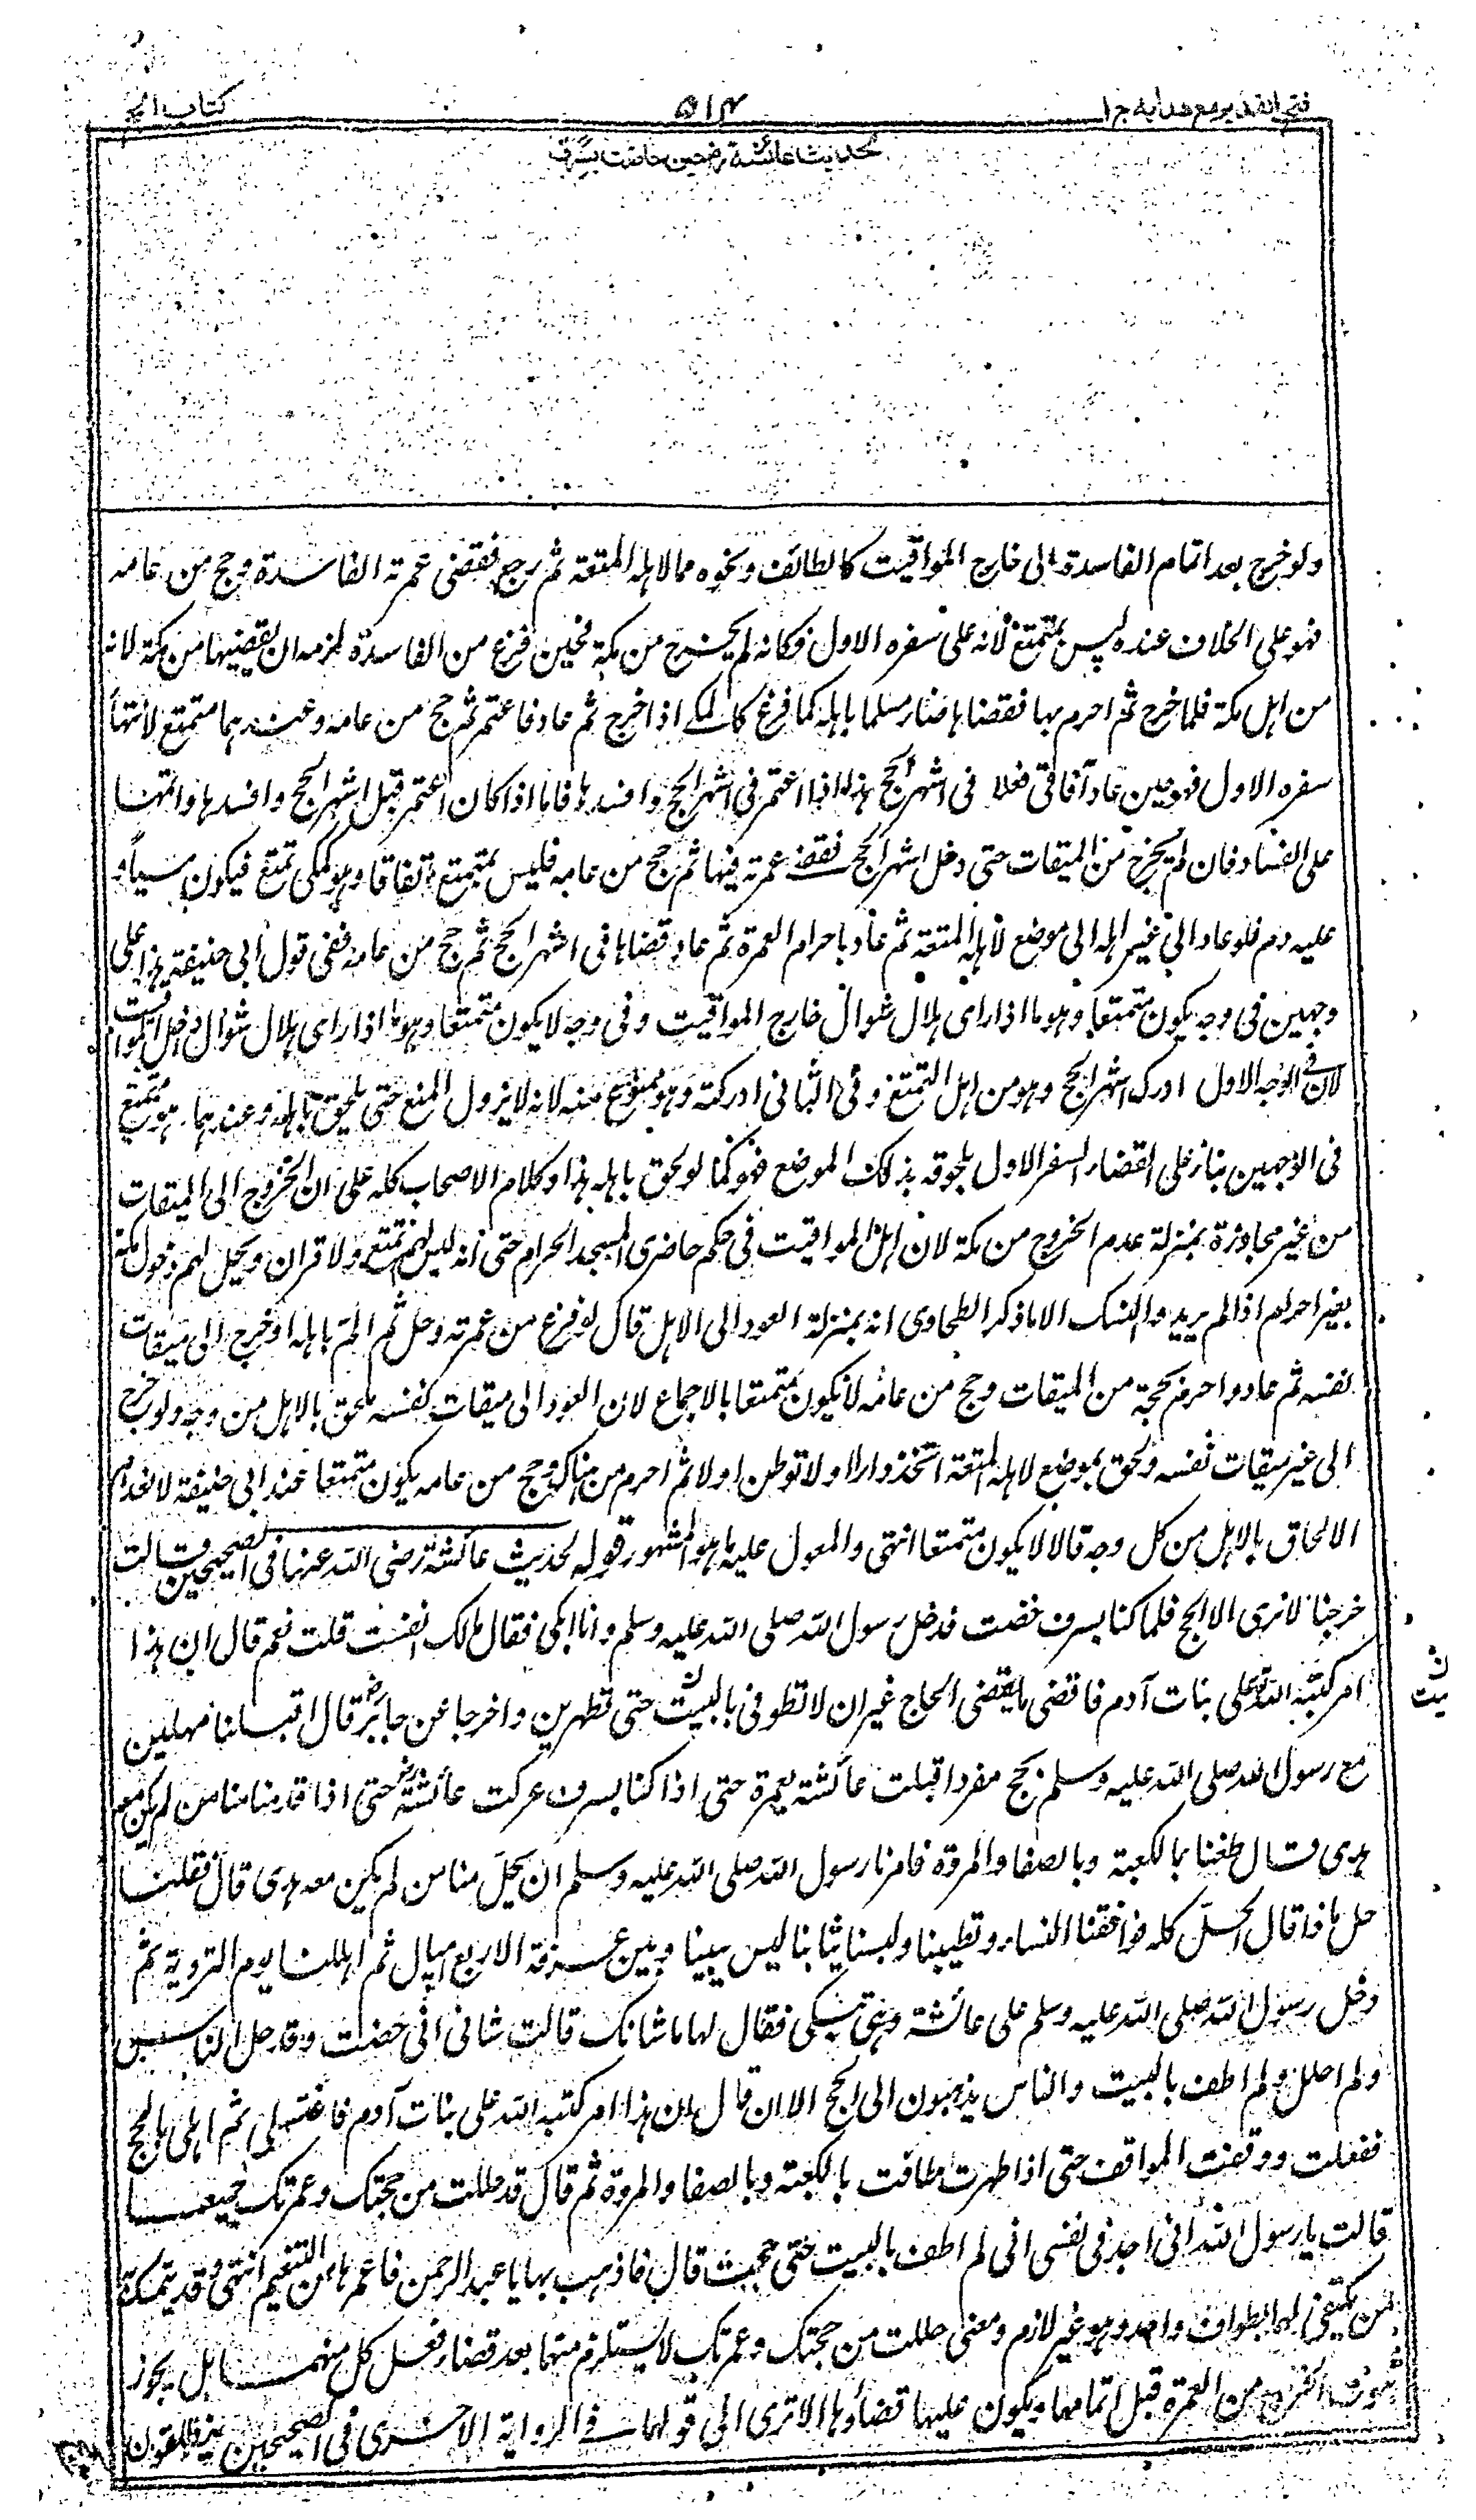 فتح القدير مع هدايه ج ١
٥١٤
كتاب الحج
لحديث عائشة رض حين حاضت بسرف
ولو خرج بعد اتمام الفاسدة الى خارج المواقيت كالطائف ونحوه مما لاهله المتعة ثم رجع فقضى عمرته الفاسدة وحج من عامه
فهو على الخلاف عنده ليس بمتمتع لانه على سفره الاول فكانه لم يخرج من مكة فحين فرغ من الفاسدة لزمه ان يقضيها من مكة لانه
من اهل مكة فلما خرج ثم احرم بها فقضاها صار ملما باهله كما فرغ كالمكي اذا خرج ثم عاد فاعتمر ثم حج من عامه وعندهما متمتع لانتهاء
سفره الاول فهو حين عاد آفاقي فعلا في اشهر الحج هذا اذا اعتمر في اشهر الحج وافسدها فاما اذا كان اعتمر قبل اشهر الحج وافسدها واتمها
على الفساد فان لم يخرج من الميقات حتى دخل اشهر الحج فقضى عمرته فيها ثم حج من عامه فليس بمتمتع اتفاقا وهو كمكي تمتع فيكون مسيأ و
عليه دم فلو عاد الى غير اهله الى موضع لاهله المتعة ثم عاد باحرام العمرة ثم عاد قضاها في اشهر الحج ثم حج من عامه ففي قول ابي حنيفة هذا على
وجهين في وجه يكون متمتعا وهو ما اذا راى هلال شوال خارج المواقيت وفي وجه لا يكون متمتعا وهو ما اذا راى هلال شوال داخل المواقيت
لان في الوجه الاول ادرك اشهر الحج وهو من اهل التمتع وفي الثاني ادركته وهو ممنوع عنه لانه لا يزول المنع حتى يلحق باهله وعندهما هو متمتع
في الوجهين بناء على انقضاء السفر الاول بلحوقه بذلك الموضع فهو كما لو لحق باهله هذا وكلام الاصحاب كله على ان الخروج الى الميقات
من غير مجاوزة بمنزلة عدم الخروج من مكة لان اهل المواقيت في حكم حاضرى المسجد الحرام حتى انه ليس لهم تمتع ولا قران ويحل لهم دخول مكة
بغير احرام اذا لم يريدوا النسك الا ما ذكر الطحاوى انه بمنزلة العود الى الاهل قال لو فرغ من عمرته وحل ثم الم باهله او خرج الى ميقات
نفسه ثم عاد واحرم بحجة من الميقات وحج من عامه لا يكون متمتعا بالاجماع لان العود الى ميقات نفسه ملحق بالاهل من وجه ولو خرج
الى غير ميقات نفسه ولحق بموضع لاهله المتعة اتخذ دارا او لا توطن او لا ثم احرم من هناك وحج من عامه يكون متمتعا عند ابي حنيفة لانعدام
الالحاق بالاهل من كل وجه قالا لا يكون متمتعا انتهى والمعول عليه ما هو المشهور قوله لحديث عائشة رضى الله عنها في الصحيحين قالت
خرجنا لا نرى الا الحج فلما كنا بسرف حضت فدخل رسول الله صلى الله عليه وسلم وانا ابكي فقال مالك انفست قلت نعم قال ان هذا
امر كتبه الله على بنات آدم فاقضى ما يقضى الحاج غير ان لا تطوفى بالبيت حتى تطهرين واخرجا عن جابر رض قال اقبلنا مهلين
مع رسول الله صلى الله عليه وسلم بحج مفردا قبلت عائشة بعمرة حتى اذا كنا بسرف عركت عائشة رض حتى اذا قدمنا منا من لم يكن معه
هدى قال طفنا بالكعبة وبالصفا والمروة فامرنا رسول الله صلى الله عليه وسلم ان يحل منا من لم يكن معه هدى قال فقلنا
حل ماذا قال الحل كله فواقعنا النساء وتطيبنا ولبسنا ثيابنا ليس بيننا وبين عرفة الا اربع ليال ثم اهللنا يوم التروية ثم
دخل رسول الله صلى الله عليه وسلم على عائشة وهى تبكى فقال لها ما شانك قالت شانى انى حضت وقد حل الناس
ولم احلل ولم اطف بالبيت والناس يذهبون الى الحج الان قال ان هذا امر كتبه الله على بنات آدم فاغتسلى ثم اهلى بالحج
ففعلت ووقفت المواقف حتى اذا طهرت طافت بالكعبة وبالصفا والمروة ثم قال قد حللت من حجتك وعمرتك جميعا
قالت يا رسول الله انى اجد فى نفسى انى لم اطف بالبيت حتى حججت قال فاذهب بها يا عبد الرحمن فاعمرها من التنعيم انتهى وقد يتمسك به
من يكتفى لهما بطواف واحد وهو غير لازم ومعنى حللت من حجتك وعمرتك لا يستلزم منهما بعد قضاء فعل كل منهما بل يجوز
ثبوت الخروج من العمرة قبل اتمامها ويكون عليها قضاؤها الا ترى الى قولها فى الرواية الاخرى فى الصحيحين ينطلقون